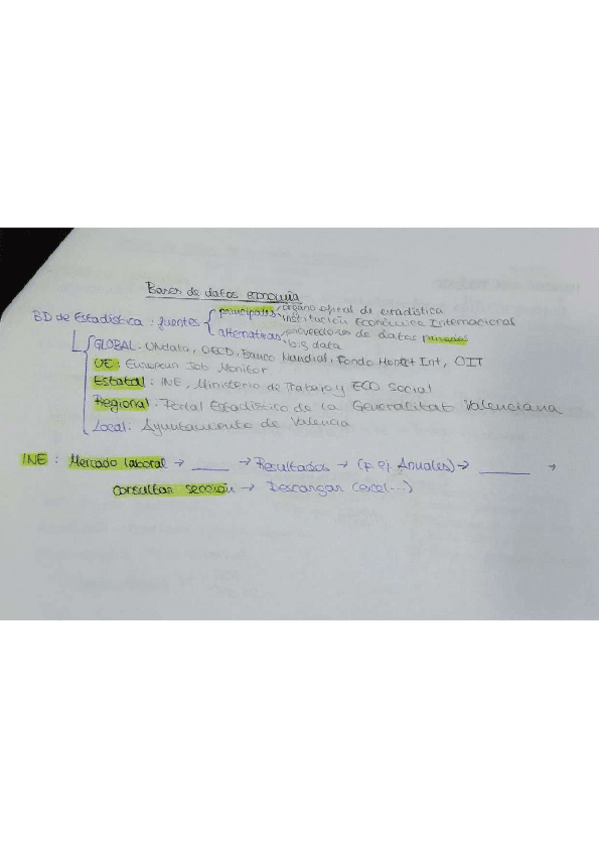 Bases de datos economía
BD de Estadística : fuentes { principales órgano oficial de estadística
institución Económica Internacional
alternativas proveedores de datos privados
big data
GLOBAL : UNdata, OECD, Banco Mundial, Fondo Monet Int, OIT
UE : European Job Monitor
Estatal : INE, Ministerio de Trabajo y ECO Social
Regional : Portal Estadístico de la Generalitat Valenciana
Local : Ayuntamiento de Valencia
INE : Mercado laboral → ____ → Resultados → (p. ej Anuales) → ______ →
consultar sección → Descargar (excel...)